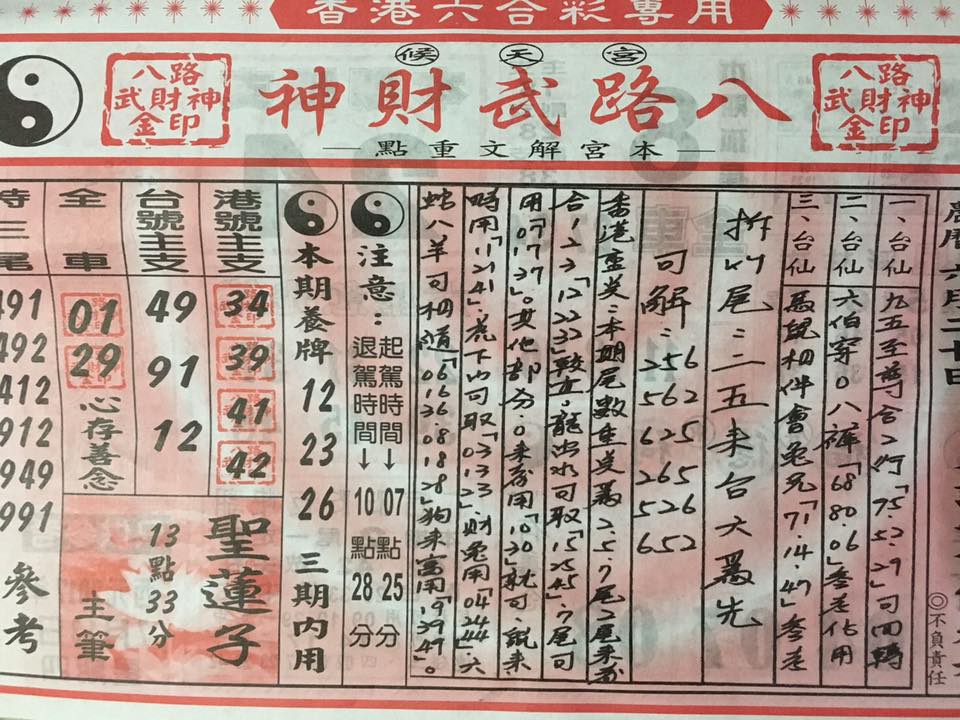 香港六合彩專用
候天宮
神財武路八
八路
武財神
金印
八路
武財神
金印
點重文解宮本
農曆六月二十
◎不負責任
一、台仙 九五至尊合2行「75.2.29」可回轉
二、台仙 六伯穿0八褲「68.80.06」參差佔用
三、台仙 馬鼠相伴會兔兄「71.14.47」參差
拆以尾：二五来合六為先
可解：256
562
625
265
526
652
香港直美：本期尾數重美為2.5.7尾2尾来
合123「12.22.32」較旺。龍出水可取「15.25.45」7尾可
用「07.17.37」。其他部分.0来用「10.30」就可.說来
時用「11.21.41」。虎下山可取「03.13.23」.財兔用「04.24.44」.六
蛇八羊可相隨「06.16.26.08.18.28」狗来宮用「19.39.49」。
注意：
起駕時間→07點25分
退駕時間→10點28分
本期養牌 12 23 26 三期內用
港號主支
34
39
41
42
聖蓮子
台號主支
49
91
12
13點33分
全車
01
29
心存善念
主筆
三尾
491
492
412
912
949
991
參考